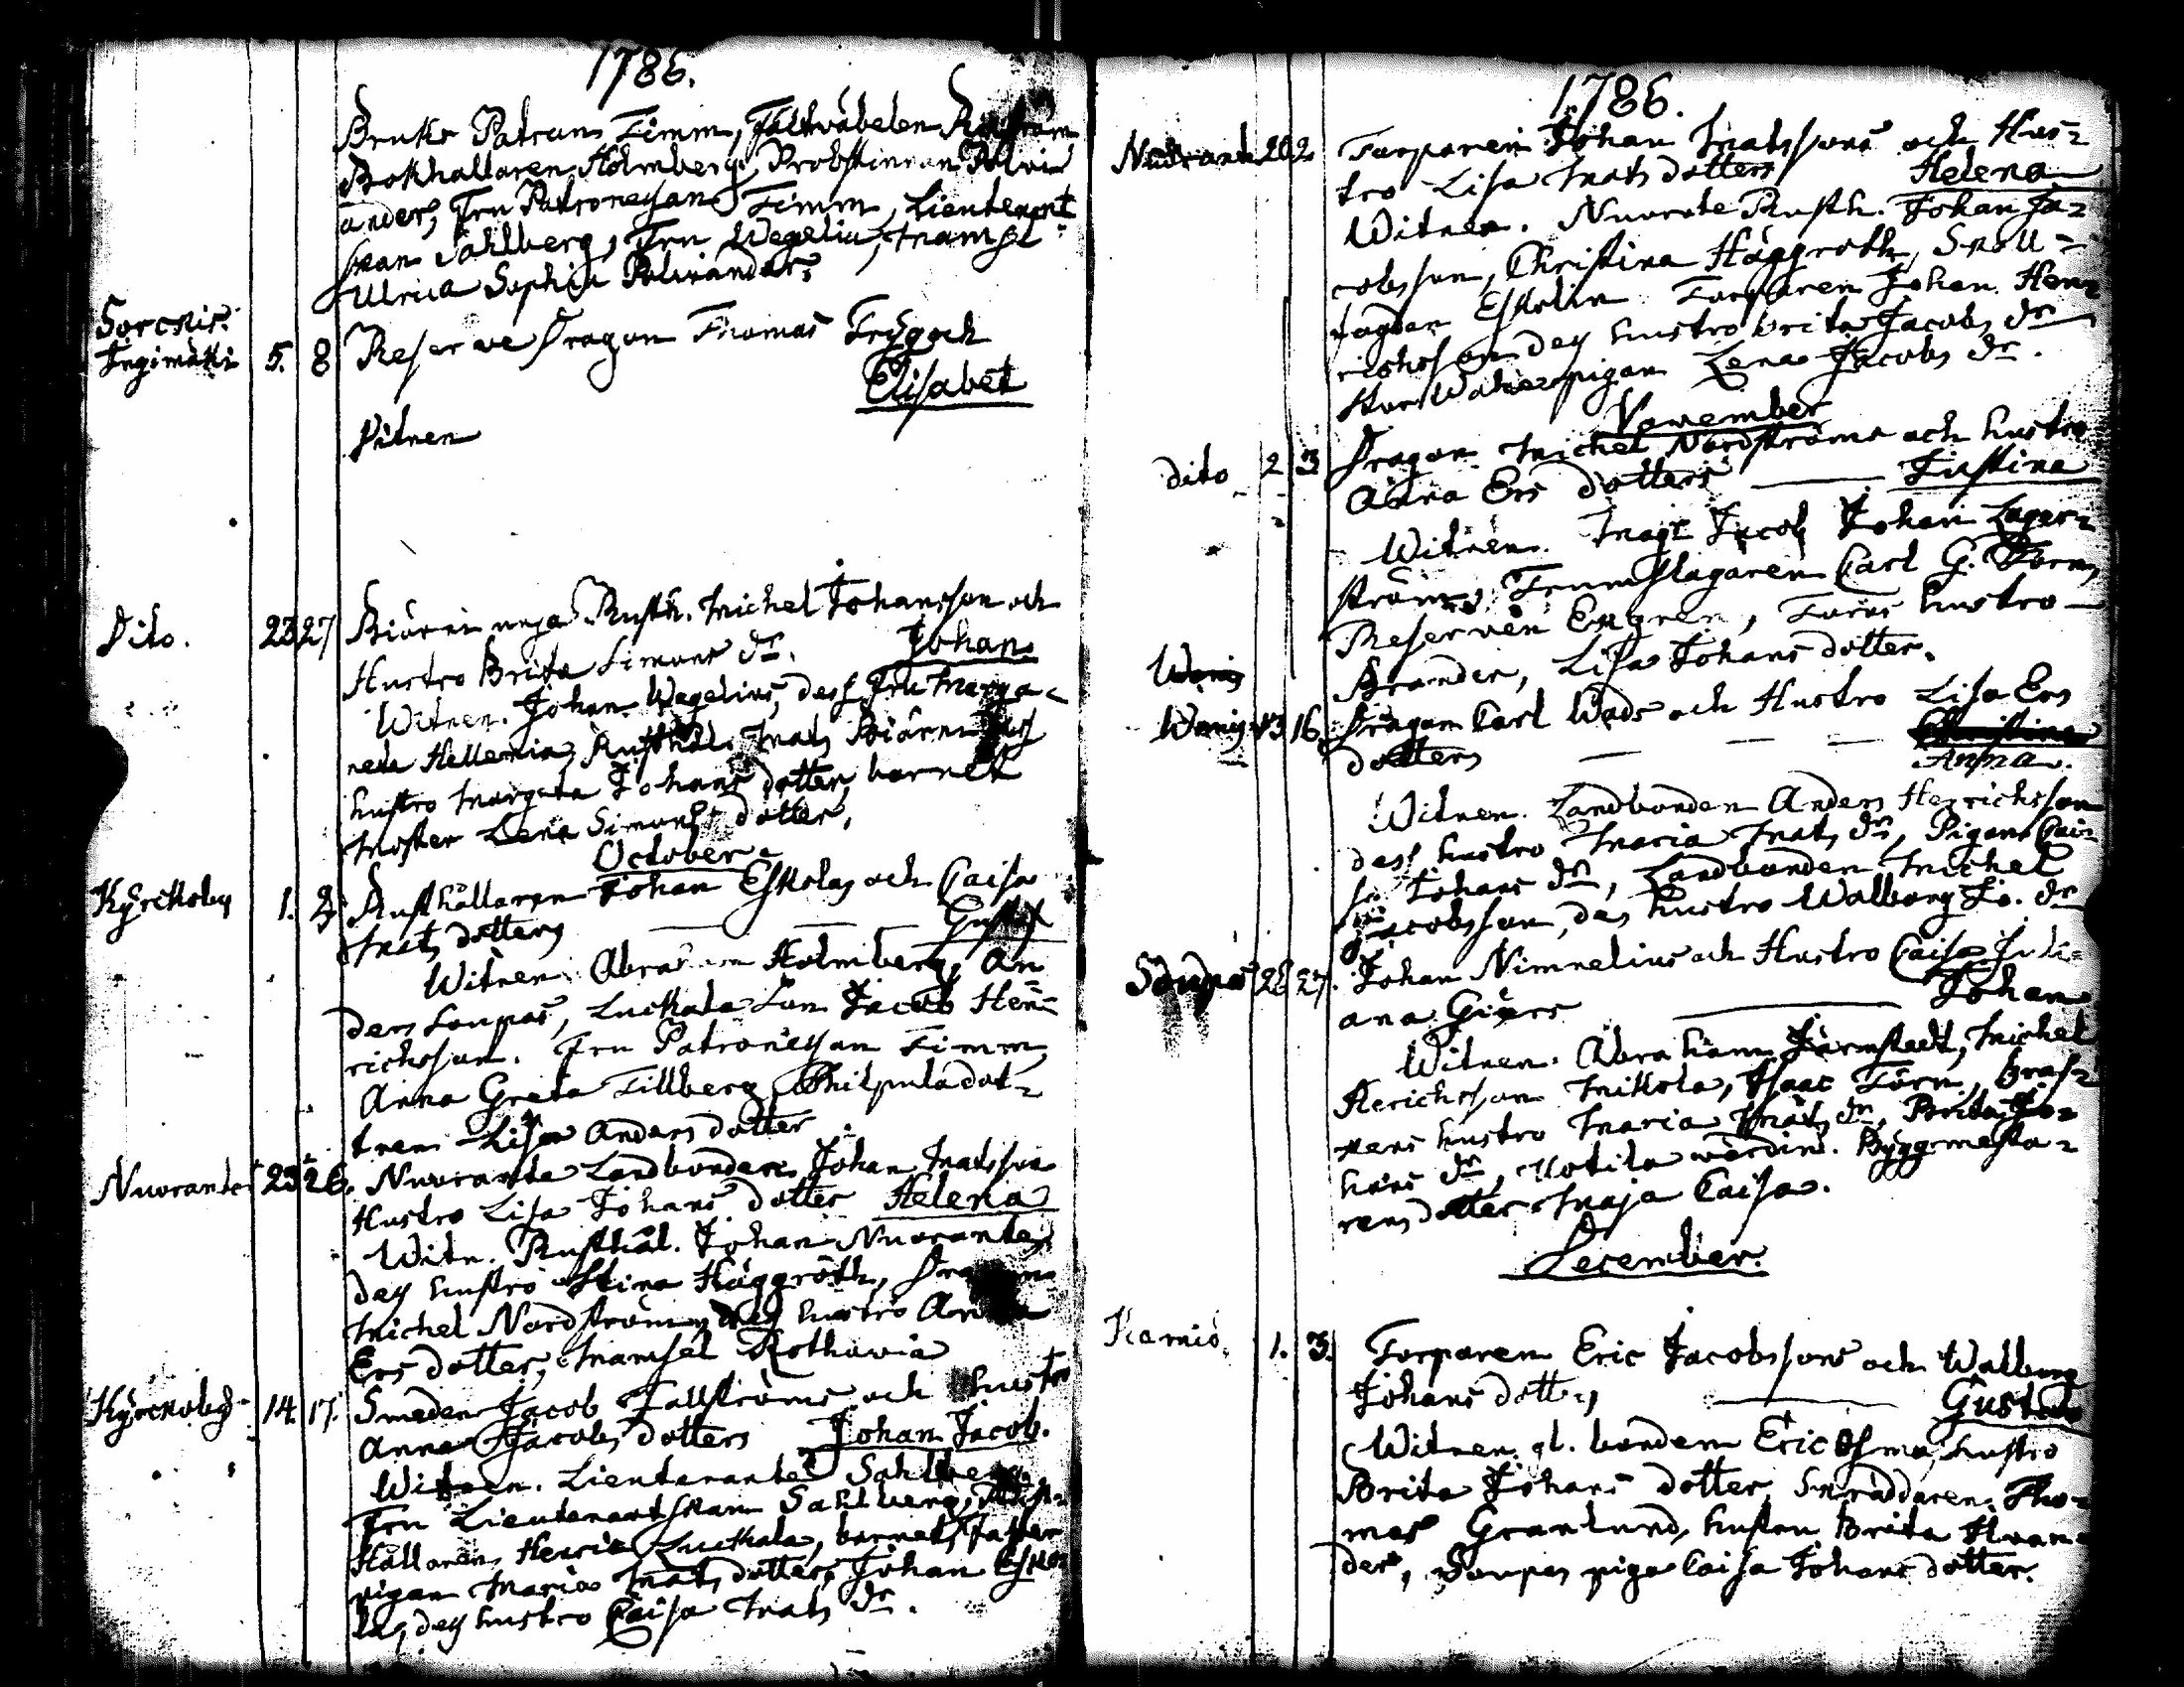 1786.
Bruks Patrun Timm, Fältväbelen
Bokhållaren Holmberg, Probstinnan Polvi
ander, Fru Patronessan Timm, Lieutenant
skan Sahlberg, Fru Wegelia, Mamsel
Ulrica Sophia Polviander.
Sorckis.
Ingimäki 5. 8 Reserve Dragon Thomas Trygg och
Elisabet
Vitnen
Dito. 23 27 Biärni Rusth. Michel Johansson och
Hustro Brita Simons dr. Johan
Witnen. Johan Wegelius, dess Fru Marga=
reta Hellenia, Rusthål. Mats Biärni
hustro Margeta Johans dotter, barnets
Moster Lena Simons dotter,
October
Kyrckoby 1. Rusthållaren Johan Eskolas och Caisa
Mats dotters Gustaf
Witnen. Abraham Holmberg, An
ders Soupas, Luckala Son Jacob Hen=
richsson. Fru Patronessan Timm,
Anna Greta Tillberg, dot=
tren Lisa Anders dotter
Nuorante 23 26. Nuorante Landbonden Johan Matsson
Hustro Lisa Johans dotter Helena
Witn. Rusthål. Johan Nuorante,
des hustro Stina Häggroth, Dragon
Michel Nordström, des hustro Anna
Ers dotter, Mamsel Rothovia
Kyrckoby 14. 17. Smeden Jacob Fallströms och hustr
Anna Jacobs dotters Johan Jacob.
Witnen. Lieutenanten Sahlberg
Fru Lieutenantskan Sahlberg, Rust=
Hållaren Henric Luckala, barnets Faster
pigan Maria Mats dotter, Johan Esko=
las, des hustro Caisa Mats dr.
1786.
Nuorante Torparen Johan Matssons och Hus=
tro Lisa Mats dotters Helena
Witnen. Nuorate Rusth. Johan Ja=
cobsson, Christina Häggroth, Snäll=
fogden Eskolin Torparen Johan Hen=
richsson des hustro brita Jacobs dr
pigan Lena Jacobs dr.
November
dito 2 3 Dragon Michel Nordströms och hustro
Anna Ers dotters Justina
Witnen. Jacob Johan Lager=
ström, Trumslagaren Carl G.
Reserven Ekgren, hustro
Brander, Lisa Johans dotter.
Wanis
Wanis 13 16 Dragon Carl Wads och Hustro Lisa Ers
dotters Christina
Anna.
Witnen. Landbonden Anders Henrichsson
dess hustro Maria Mats dr, Pigan Cai=
sa Johans dr, Landbonden Michel
Jacobsson, des hustro Walborg Jo. dr
Soupas 26 27. Johan Nimnelius och Hustro Caisa Juli=
ana Giers Johan
Witnen. Abraham Järnstedt, Michel
Henrichsson Mikola, Isaac Törn, bras=
kens hustro Maria Mats dr, Brita Jo=
hans dr, Kotila Byggmästa=
rens dotter Maja Caisa.
December.
Karnis. 1. 3. Torparen Eric Jacobssons och Walborg
Johans dotters Gustav
Witnen gl. bonden Eric hustro
Brita Johans dotter, Skräddaren Tho=
mas Granlund, hustru Brita
der, Soupas piga Caisa Johans dotter.